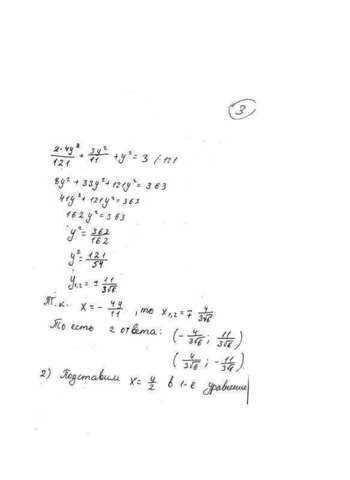 3
2·4y²/121 + 3y²/11 + y² = 3 |·121
8y² + 33y² + 121y² = 363
41y² + 121y² = 363
162y² = 363
y² = 362/162
y² = 121/54
y₁,₂ = ± 11/3√6
Т.к. x = - 4y/11 , то x₁,₂ = ∓ 4/3√6
То есть 2 ответа: (- 4/3√6 ; 11/3√6)
(4/3√6 ; - 11/3√6)
2) Подставим x = y/2 в 1-е уравнение